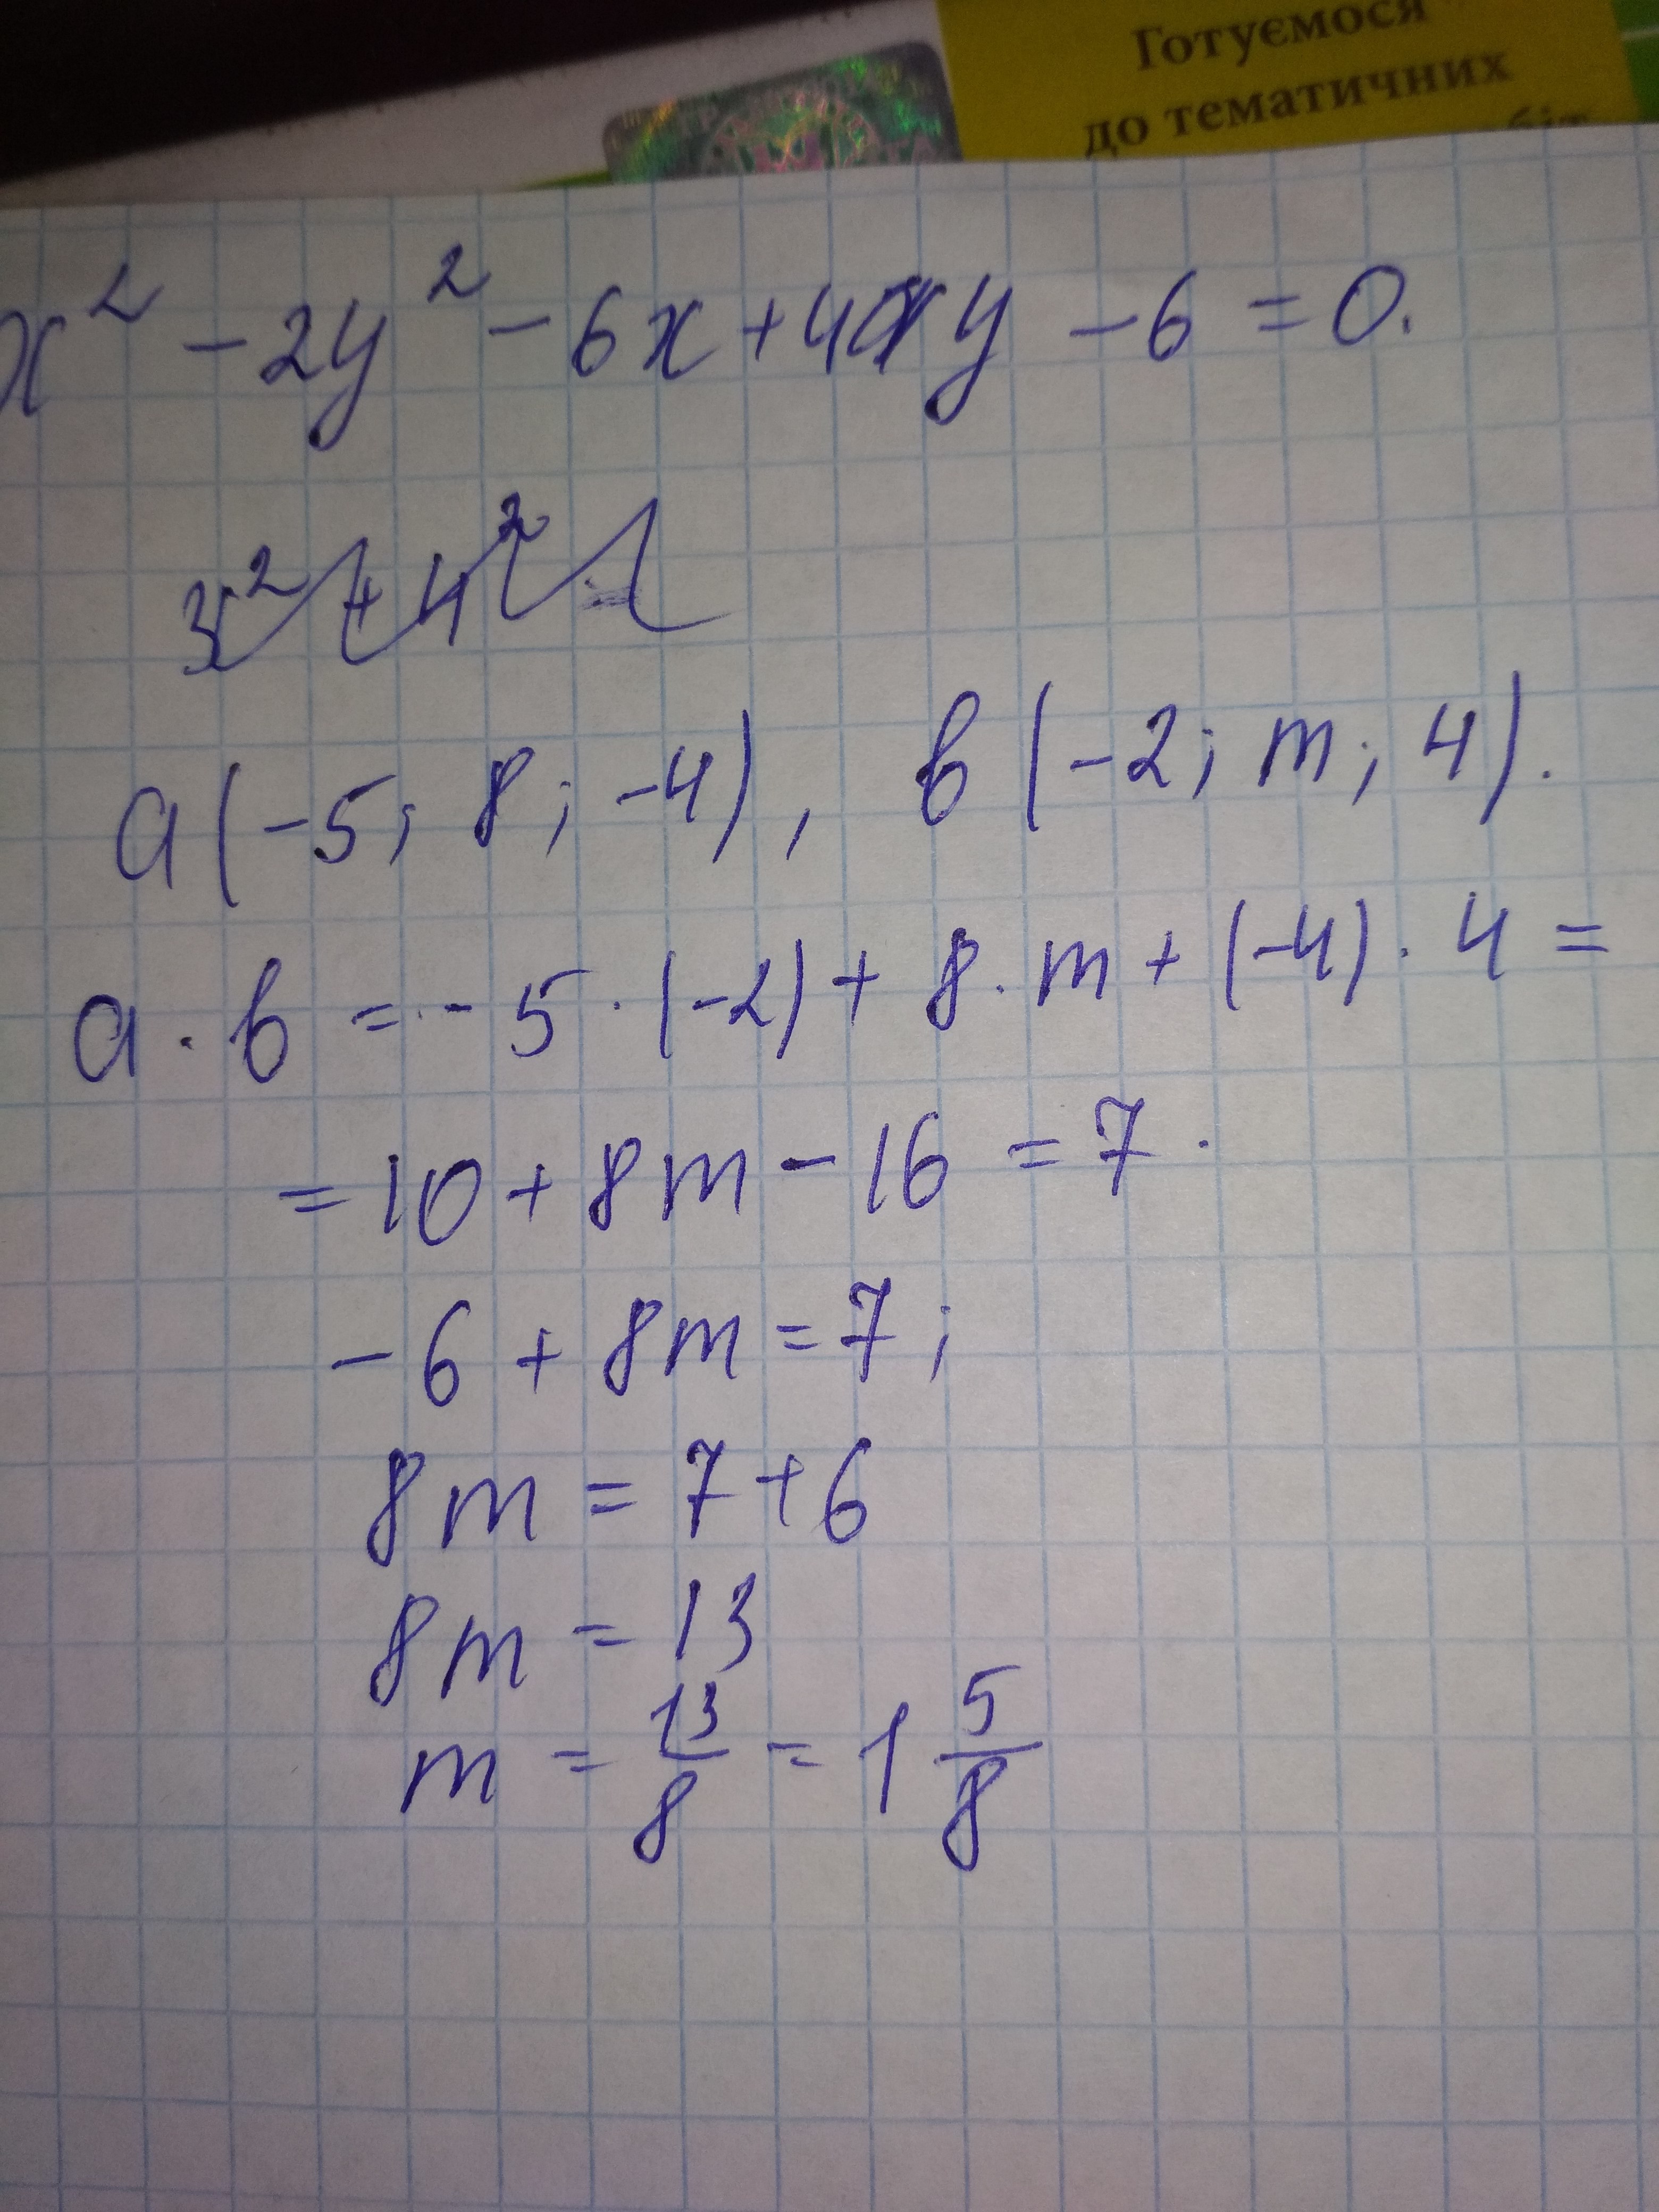 Готуємося
до тематичних
x² - 2y² - 6x + 4xy - 6 = 0.
3² + 4²
a(-5; 8; -4), b(-2; m; 4).
a · b = -5 · (-2) + 8 · m + (-4) · 4 =
= 10 + 8m - 16 = 7.
-6 + 8m = 7;
8m = 7+6
8m = 13
m = 13/8 = 1 5/8